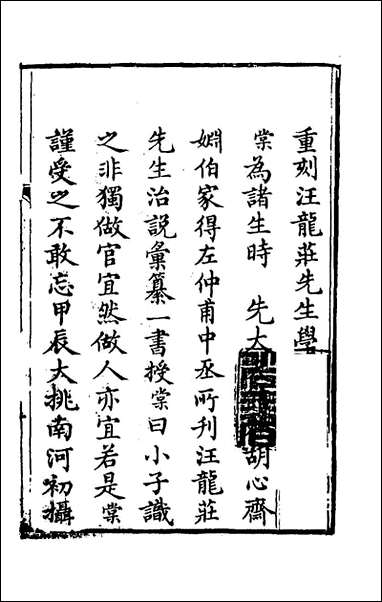 重刻汪龍莊先生學
棠為諸生時 先大 胡心齋
姻伯家得左仲甫中丞所刊汪龍莊
先生治說彙纂一書授棠曰小子識
之非獨做官宜然做人亦宜若是棠
謹受之不敢忘甲辰大挑南河初攝